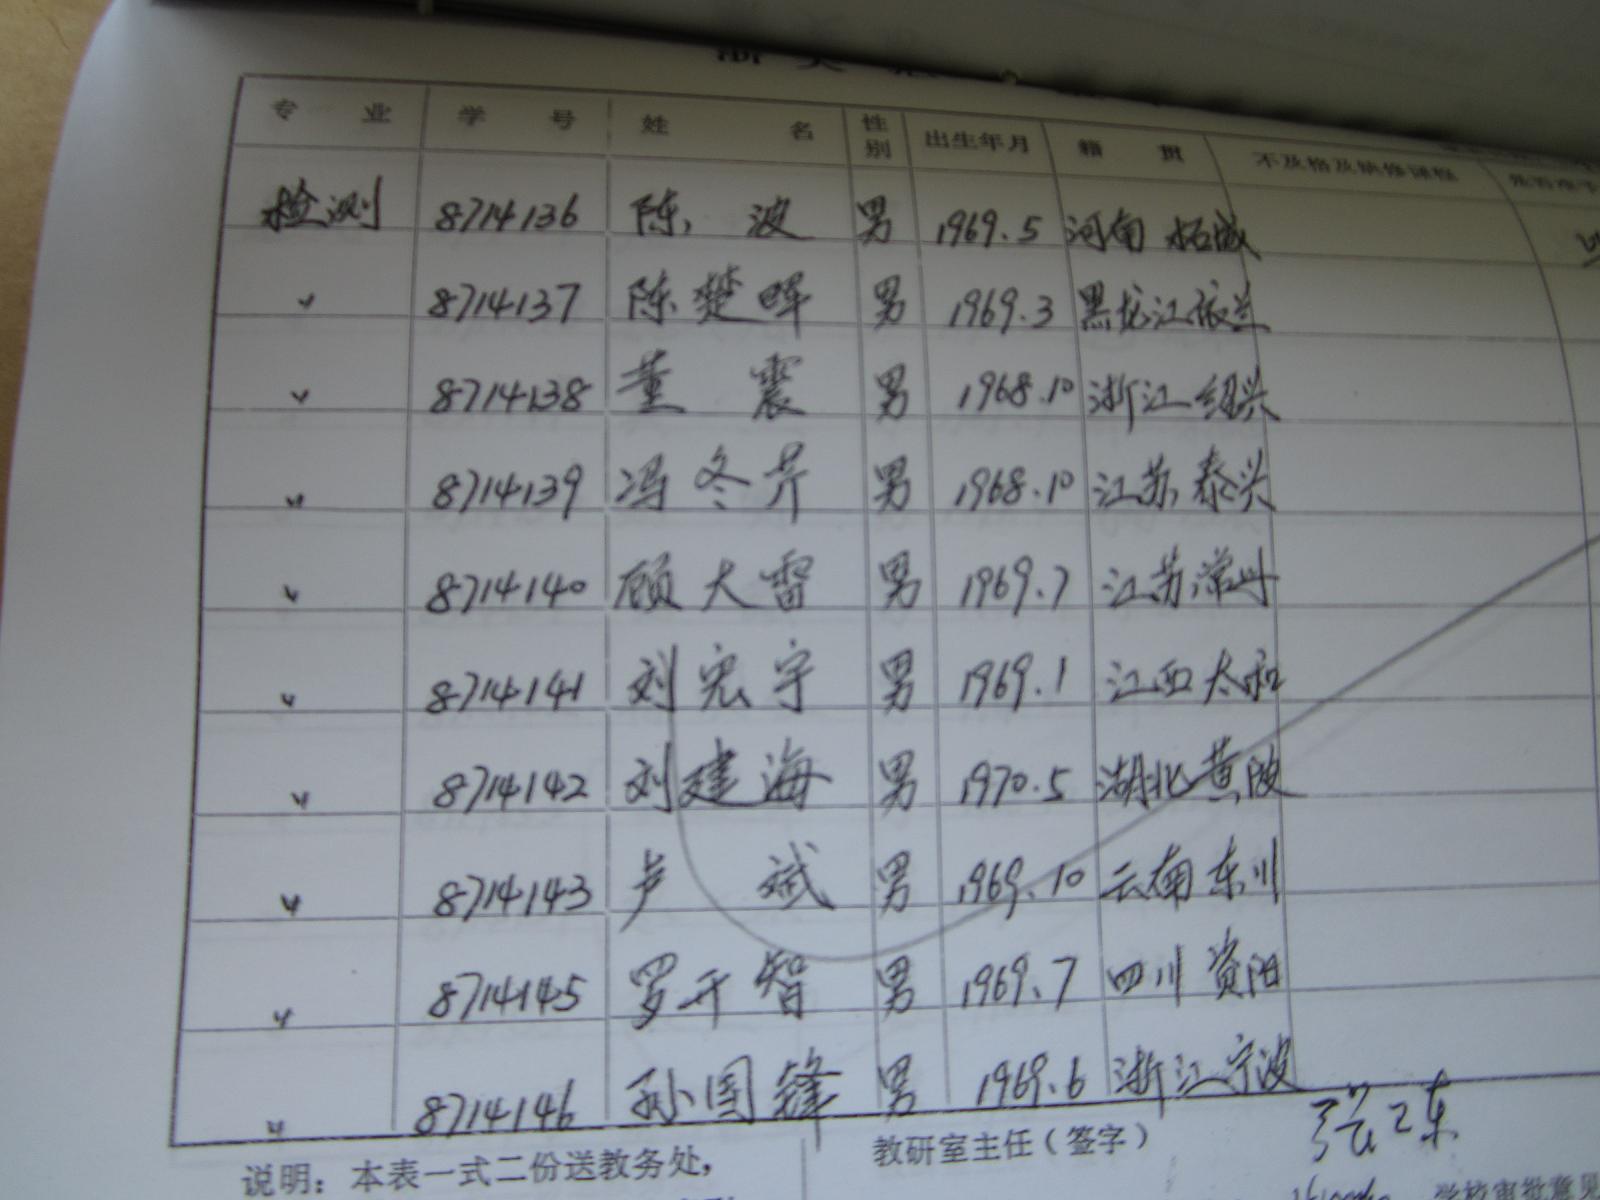 专 业 学 号 姓 名 性别 出生年月 籍 贯 不及格及缺修课程
检测 8714136 陈 波 男 1969.5 河南 柘城
〃 8714137 陈楚晖 男 1969.3 黑龙江依兰
〃 8714138 董 震 男 1968.10 浙江绍兴
〃 8714139 冯冬芹 男 1968.10 江苏泰兴
〃 8714140 顾大雷 男 1969.7 江苏常州
〃 8714141 刘宏宇 男 1969.1 江西太和
〃 8714142 刘建海 男 1970.5 湖北黄陂
〃 8714143 卢 斌 男 1969.10 云南东川
〃 8714145 罗开智 男 1969.7 四川资阳
〃 8714146 孙国锋 男 1969.6 浙江宁波
说明：本表一式二份送教务处， 教研室主任（签字）
学校审批意见